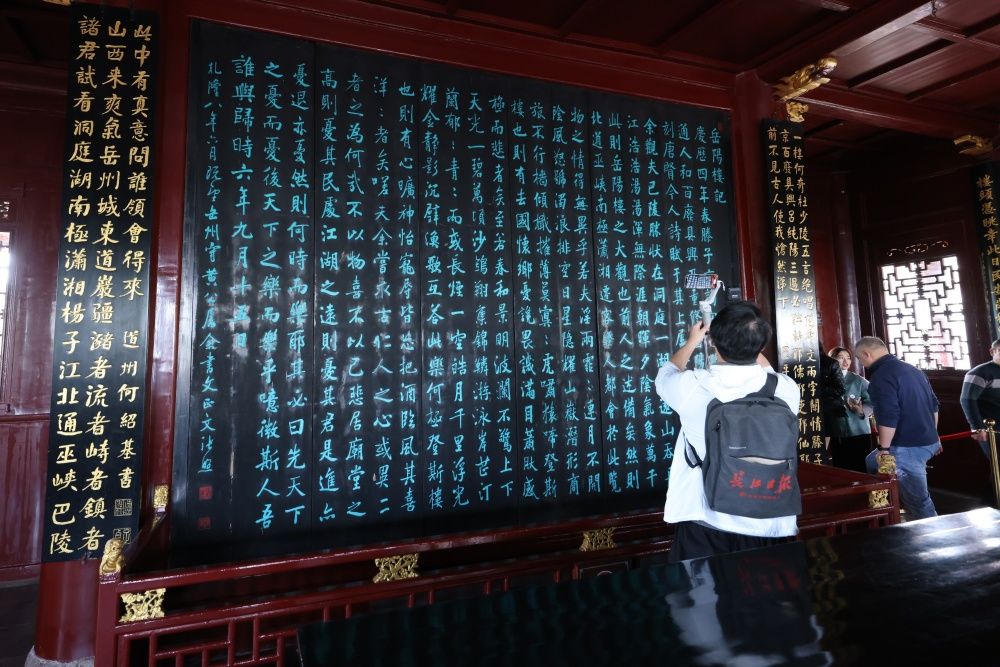 諸君試看洞庭湖南極瀟湘楊子江北通巫峽巴陵
山西來爽氣岳州城東道巖疆瀦者流者峙者鎮者
此中有真意問誰領會得來 道州何紹基書
岳陽樓記
慶歷四年春滕子
通人和百廢具興
刻唐賢今人詩賦于其上屬
余觀夫巴陵勝狀在洞庭一湖遠山吞
江浩浩湯湯渾無際涯朝暉夕陰氣象萬千
此則岳陽樓之大觀也前人之述備矣然則
北通巫峽南極瀟湘遷客騷人都會於此覽
物之情得無異乎若夫淫雨霏:連月不開
陰風怒號濁浪排空日星隱耀山嶽潛形商
旅不行檣傾檝摧薄暮冥:虎嘯猿啼登斯
樓也則有去國懷鄉憂讒畏譏滿目蕭然感
極而悲者矣至若春和景明波瀾不驚上下
天光一碧萬頃沙鷗翔集錦鱗游泳岸芷汀
蘭郁:青:而或長煙一空皓月千里浮光
耀金靜影沉璧漁歌互答此樂何極登斯樓
也則有心曠神怡寵辱皆忘把酒臨風其喜
洋:者矣嗟夫余嘗求古仁人之心或異二
者之為何哉不以物喜不以己悲居廟堂之
高則憂其民處江湖之遠則憂其君是進亦
憂退亦憂然則何時而樂耶其必曰先天下
之憂而憂後天下之樂而樂乎噫微斯人吾
誰與歸時六年九月十五日
乾隆八年六月既望岳州守黃公屬余書文正文 張照
一樓何奇杜少陵五言絕唱范希文兩字關情滕子
京百廢具興呂純陽三過必醉詩耶儒耶吏耶仙耶
前不見古人使我愴然淚下
樓頭憑眺
長江日報